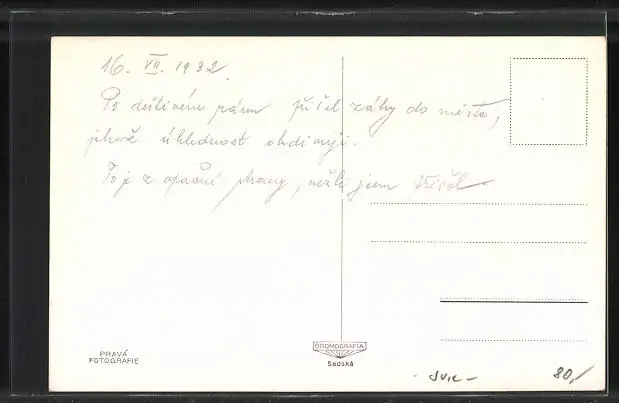 16. VII. 1932.
Po deštivém ránu přišel záhy do města,
jehož úhlednost obdivuji.
To je z opačné strany, nežli jsem přišel
PRAVÁ
FOTOGRAFIE
BROMOGRAFIA
Sadská
80,-